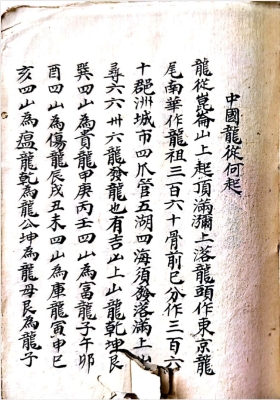 中國龍從何起
龍從崑崙山上起頂滿瀰上落龍頭作東京龍
尾南華作龍祖三百六十骨前已分作三百六
十郡洲城市四爪管五湖四海須發落滿上山
尋六六卅六龍發龍也有吉山上山龍乾坤艮
巽四山為貴龍甲庚丙壬四山為富龍子午卯
酉四山為傷龍辰戌丑未四山為庫龍寅申巳
亥四山為瘟龍乾為龍公坤為龍母艮為龍子